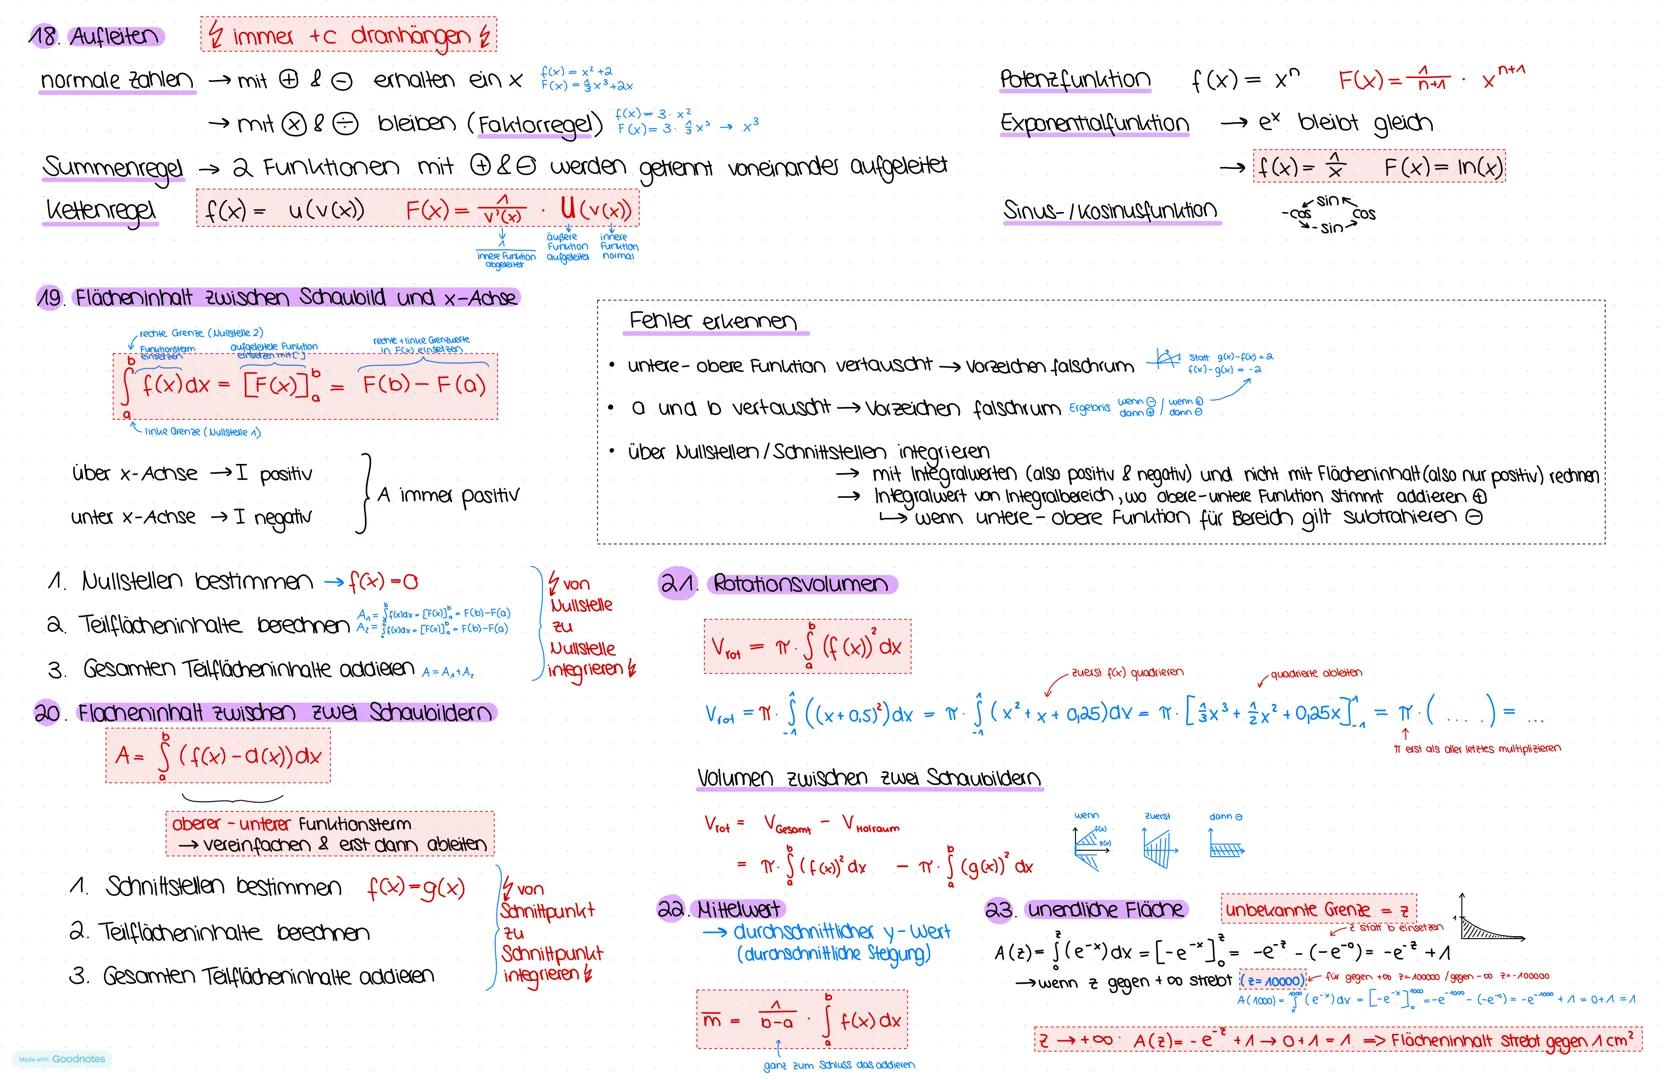 18. Aufleiten
↯ immer +c dranhängen ↯
normale Zahlen → mit ⊕ & ⊖ erhalten ein x
f(x) = x² + 2
F(x) = ⅓x³ + 2x
→ mit ⊗ & ⊘ bleiben (Faktorregel)
f(x) = 3 · x²
F(x) = 3 · ⅓x³ → x³
Summenregel → 2 Funktionen mit ⊕ & ⊖ werden getrennt voneinander aufgeleitet
Kettenregel f(x) = u(v(x)) F(x) = 1/v'(x) · U(v(x))
1/innere Funktion abgeleitet
äußere Funktion aufgeleitet
innere Funktion normal
Potenzfunktion f(x) = xⁿ F(x) = 1/(n+1) · xⁿ⁺¹
Exponentialfunktion → eˣ bleibt gleich
→ f(x) = 1/x F(x) = ln(x)
Sinus-/Kosinusfunktion
sin
-cos cos
-sin
19. Flächeninhalt zwischen Schaubild und x-Achse
rechte Grenze (Nullstelle 2)
Funktionsterm einsetzen
aufgeleitete Funktion einsetzen mit [ ]
rechte + linke Grenzwerte in F(x) einsetzen
∫ₐᵇ f(x)dx = [F(x)]ₐᵇ = F(b) - F(a)
linke Grenze (Nullstelle 1)
über x-Achse → I positiv
unter x-Achse → I negativ
A immer positiv
Fehler erkennen
• untere- obere Funktion vertauscht → Vorzeichen falschrum
statt g(x)-f(x) = 2
f(x)-g(x) = -2
• a und b vertauscht → Vorzeichen falschrum
Ergebnis wenn ⊖ dann ⊕ / wenn ⊕ dann ⊖
• über Nullstellen/Schnittstellen integrieren
→ mit Integralwerten (also positiv & negativ) und nicht mit Flächeninhalt (also nur positiv) rechnen
→ Integralwert von Integralbereich, wo obere-untere Funktion stimmt addieren ⊕
↳ wenn untere - obere Funktion für Bereich gilt subtrahieren ⊖
1. Nullstellen bestimmen → f(x) = 0
2. Teilflächeninhalte berechnen
A₁ = ∫ₐᵇ f(x)dx = [F(x)]ₐᵇ = F(b)-F(a)
A₂ = ∫ₐᵇ f(x)dx = [F(x)]ₐᵇ = F(b)-F(a)
3. Gesamten Teilflächeninhalte addieren A = A₁ + A₂
↯ von
Nullstelle
zu
Nullstelle
integrieren ↯
20. Flächeninhalt zwischen zwei Schaubildern
A = ∫ₐᵇ (f(x) - d(x))dx
oberer - unterer Funktionsterm
→ vereinfachen & erst dann ableiten
1. Schnittstellen bestimmen f(x) = g(x)
2. Teilflächeninhalte berechnen
3. Gesamten Teilflächeninhalte addieren
↯ von
Schnittpunkt
zu
Schnittpunkt
integrieren ↯
21. Rotationsvolumen
V_rot = π · ∫ₐᵇ (f(x))² dx
zuerst f(x) quadrieren
quadrierte ableiten
V_rot = π · ∫₋₁¹ ((x + 0,5)²)dx = π · ∫₋₁¹ (x² + x + 0,25)dx = π · [⅓x³ + ½x² + 0,25x]₋₁¹ = π · (....) = ...
π erst als aller letztes multiplizieren
Volumen zwischen zwei Schaubildern
V_rot = V_Gesamt - V_Holraum
= π · ∫ₐᵇ (f(x))² dx - π · ∫ₐᵇ (g(x))² dx
wenn zuerst dann ⊖
f(x)
g(x)
22. Mittelwert
→ durchschnittlicher y-Wert
(durchschnittliche Steigung)
m̅ = 1/(b-a) · ∫ₐᵇ f(x)dx
ganz zum Schluss das addieren
23. unendliche Fläche
unbekannte Grenze = z
z statt b einsetzen
1
A(z) = ∫₀ᶻ (e⁻ˣ)dx = [-e⁻ˣ]₀ᶻ = -e⁻ᶻ - (-e⁻⁰) = -e⁻ᶻ + 1
→ wenn z gegen +∞ strebt (z = 10000)
für gegen +∞ z=100000 / gegen -∞ z=-100000
A(1000) = ∫₀¹⁰⁰⁰ (e⁻ˣ)dx = [-e⁻ˣ]₀¹⁰⁰⁰ = -e⁻¹⁰⁰⁰ - (-e⁻⁰) = -e⁻¹⁰⁰⁰ + 1 = 0+1 = 1
z → +∞ · A(z) = -e⁻ᶻ + 1 → 0 + 1 = 1 => Flächeninhalt strebt gegen 1 cm²
Made with Goodnotes